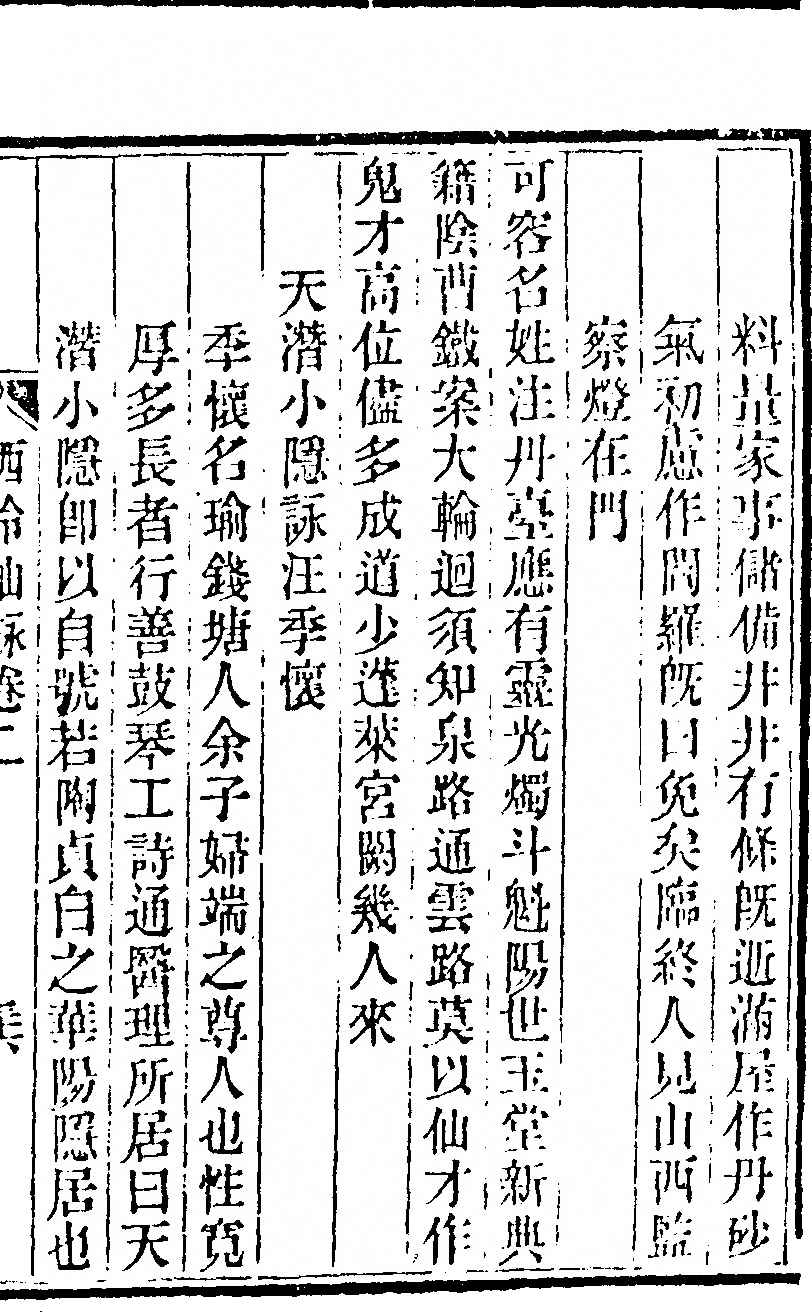 料量家事儲備井井有條旣逝滿屋作丹砂
氣初慮作閻羅旣曰免矣臨終人見山西監
察燈在門
可容名姓注丹臺應有靈光燭斗魁陽世玉堂新典
籍陰曹鐵案大輪迴須知泉路通雲路莫以仙才作
鬼才高位儘多成道少蓬萊宮闕幾人來
天潛小隱詠汪季懷
季懷名瑜錢塘人余子婦端之尊人也性寬
厚多長者行善鼓琴工詩通醫理所居曰天
潛小隱卽以自號若陶貞白之華陽隱居也
西泠仙詠卷二